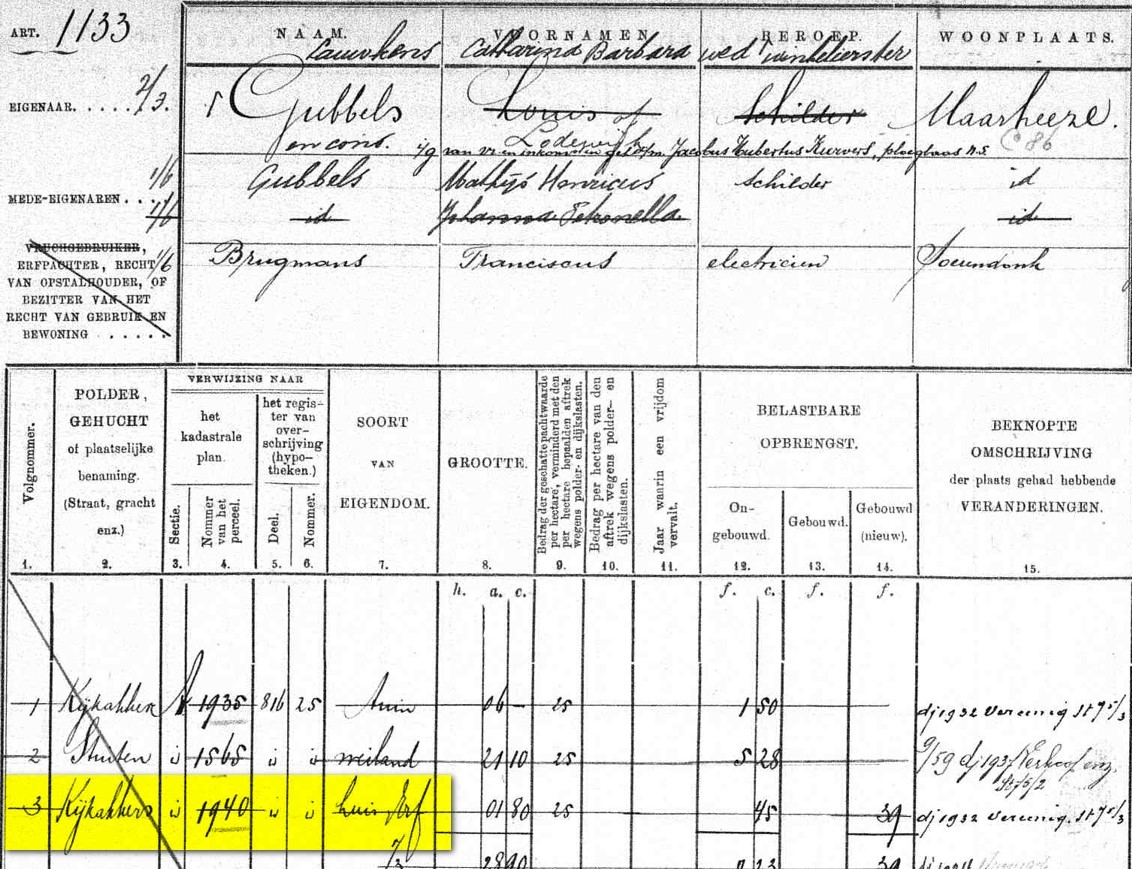 ART. 1133
NAAM. VOORNAMEN BEROEP. WOONPLAATS.
Catharina Barbara wed winkelierster
EIGENAAR. . . . . . 2/3. Gubbels Louis of Schilder Maarheeze.
en cons. Lodewijk C 86
van Jacobus Hubertus Kurvers,
1/6 Gubbels Mathijs Henricus schilder id
MEDE-EIGENAREN. . . 1/6 id Johanna Petronella id
VRUCHTGEBRUIKER,
ERFPACHTER, RECHT 1/6 Brugmans Franciscus electricien Soerendonk
VAN OPSTALHOUDER, OF
BEZITTER VAN HET
RECHT VAN GEBRUIK EN
BEWONING . . . . .
Volgnommer.
POLDER,
GEHUCHT
of plaatselijke
benaming.
(Straat, gracht
enz.)
VERWIJZING NAAR
het
kadastrale
plan.
het regis-
ter van
over-
schrijving
(hypo-
theken.)
Sectie.
Nommer
van het
perceel.
Deel.
Nommer.
SOORT
VAN
EIGENDOM.
GROOTTE.
Bedrag der geschatte pachtwaarde
per hectare, verminderd met den
per hectare bepaalden aftrek
wegens polder- en dijkslasten.
Bedrag per hectare van den
aftrek wegens polder- en
dijkslasten.
Jaar waarin een vrijdom
vervalt.
BELASTBARE
OPBRENGST.
On-
gebouwd.
Gebouwd.
Gebouwd
(nieuw).
BEKNOPTE
OMSCHRIJVING
der plaats gehad hebbende
VERANDERINGEN.
1. 2. 3. 4. 5. 6. 7. 8. 9. 10. 11. 12. 13. 14. 15.
h. a. c. f. c. f. f.
1 Kijkakkers A 1935 816 25 tuin 06 - 25 1 50 dj 1932 Vereenig. st 75/3
2 Stuiten id 1565 id id weiland 21 10 25 5 28 9/59 dj 1937 Verkoop enz.
st 75/2
3 Kijkakkers id 1940 id id huis Erf 01 80 25 45 39 dj 1932 Vereenig. st 75/3
28 90 39